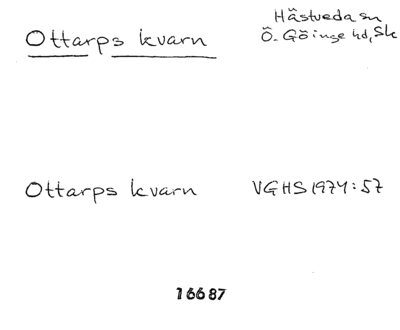 Ottarps kvarn
Hästveda sn
Ö. Göinge hd, Sk
Ottarps kvarn VGHS 1974: 57
16687